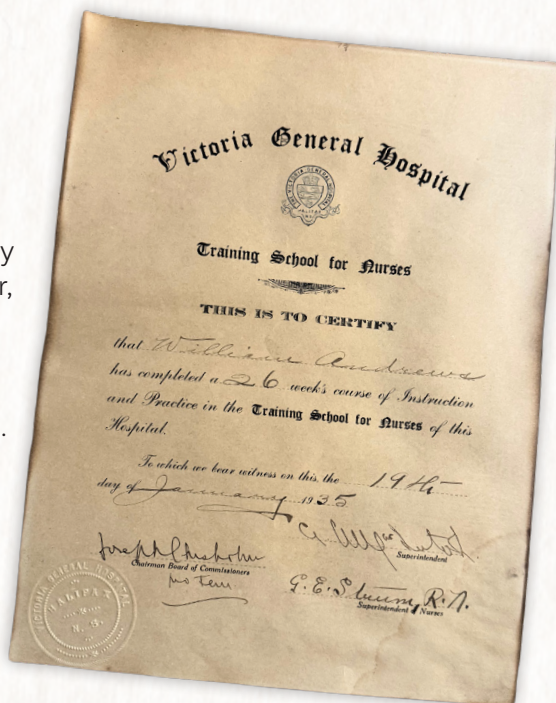 y
r,
.
Victoria General Hospital
Training School for Nurses
THIS IS TO CERTIFY
that William Andrews
has completed a 26 week's course of Instruction
and Practice in the Training School for Nurses of this
Hospital.
To which we bear witness on this the 19th
day of January 1935
Superintendent
Joseph Chisholm
Chairman Board of Commissioners
pro tem
G. E. Strum, R.N.
Superintendent of Nurses
VICTORIA GENERAL HOSPITAL
HALIFAX
N. S.